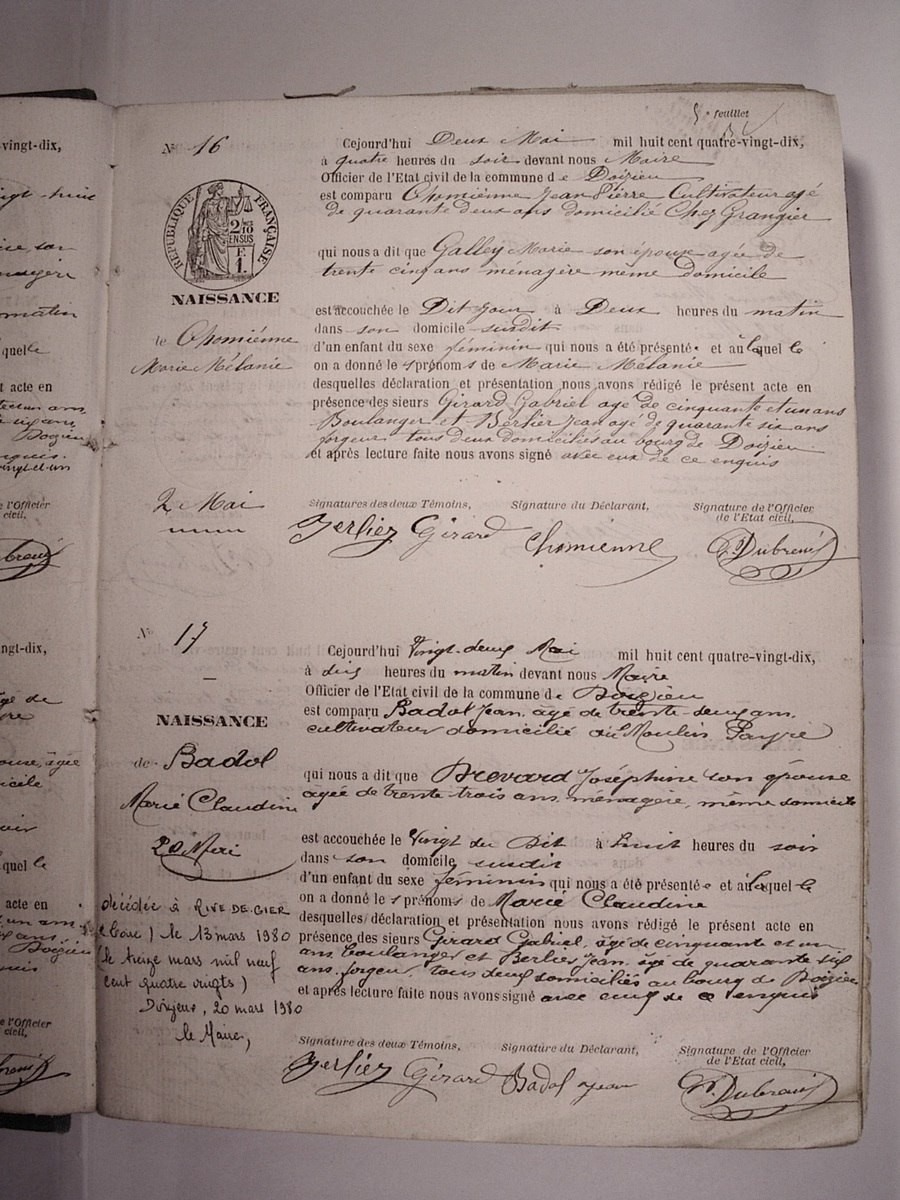 vingt-dix,
quelle
acte en
e l'Officier
civil,
ngt-dix,
quel le
acte en
e l'Officier
civil,
5e feuillet
No 16
RÉPUBLIQUE FRANÇAISE
2/10
EN SUS
F.
1.
NAISSANCE
de Chomiénne
Marie Mélanie
2 Mai
Cejourd'hui Deux Mai mil huit cent quatre-vingt-dix,
à quatre heures du soir devant nous Maire
Officier de l'Etat civil de la commune de Doizieu
est comparu Chomiénne Jean Pierre Cultivateur agé
de quarante deux ans domicilié Chez Grangier
qui nous a dit que Galley Marie son épouse agée de
trente cinq ans ménagère même domicile
est accouchée le Dit jour à Deux heures du matin
dans son domicile susdit
d'un enfant du sexe féminin qui nous a été présenté e et au laquel le
on a donné le s prénom s de Marie Mélanie
desquelles déclaration et présentation nous avons rédigé le présent acte en
présence des sieurs Girard Gabriel agé de cinquante et un ans
Boulanger et Berlier Jean agé de quarante six ans
forgeur tous deux domiciliés au bourg de Doizieu
et après lecture faite nous avons signé avec eux de ce enquis
Signatures des deux Témoins, Signature du Déclarant, Signature de l'Officier
de l'Etat civil,
Berlier Girard Chomienne Dubreuil
No 17
NAISSANCE
de Badol
Marie Claudine
20 Mai
décédée à RIVE-DE-GIER
(Loire) le 13 mars 1980
(le treize mars mil neuf
cent quatre vingts)
Doizieux, 20 mars 1980
le Maire,
Cejourd'hui Vingt-deux Mai mil huit cent quatre-vingt-dix,
à dix heures du matin devant nous Maire
Officier de l'Etat civil de la commune de Doizieu
est comparu Badol Jean, agé de trente-deux ans,
cultivateur domicilié au Moulin Payre
qui nous a dit que Brevard Joséphine son épouse
agée de trente-trois ans, ménagère, même domicile
est accouchée le Vingt du Dit à huit heures du soir
dans son domicile susdit
d'un enfant du sexe féminin qui nous a été présenté e et au laquel le
on a donné le s prénoms de Marie Claudine
desquelles déclaration et présentation nous avons rédigé le présent acte en
présence des sieurs Girard Gabriel, âgé de cinquante et un
ans, boulanger et Berlier Jean, âgé de quarante six
ans, forgeur, tous deux domiciliés au bourg de Doizieu
et après lecture faite nous avons signé avec eux de ce enquis
Signature des deux Témoins, Signature du Déclarant, Signature de l'Officier
de l'Etat civil,
Berlier Girard Badol Jean Dubreuil